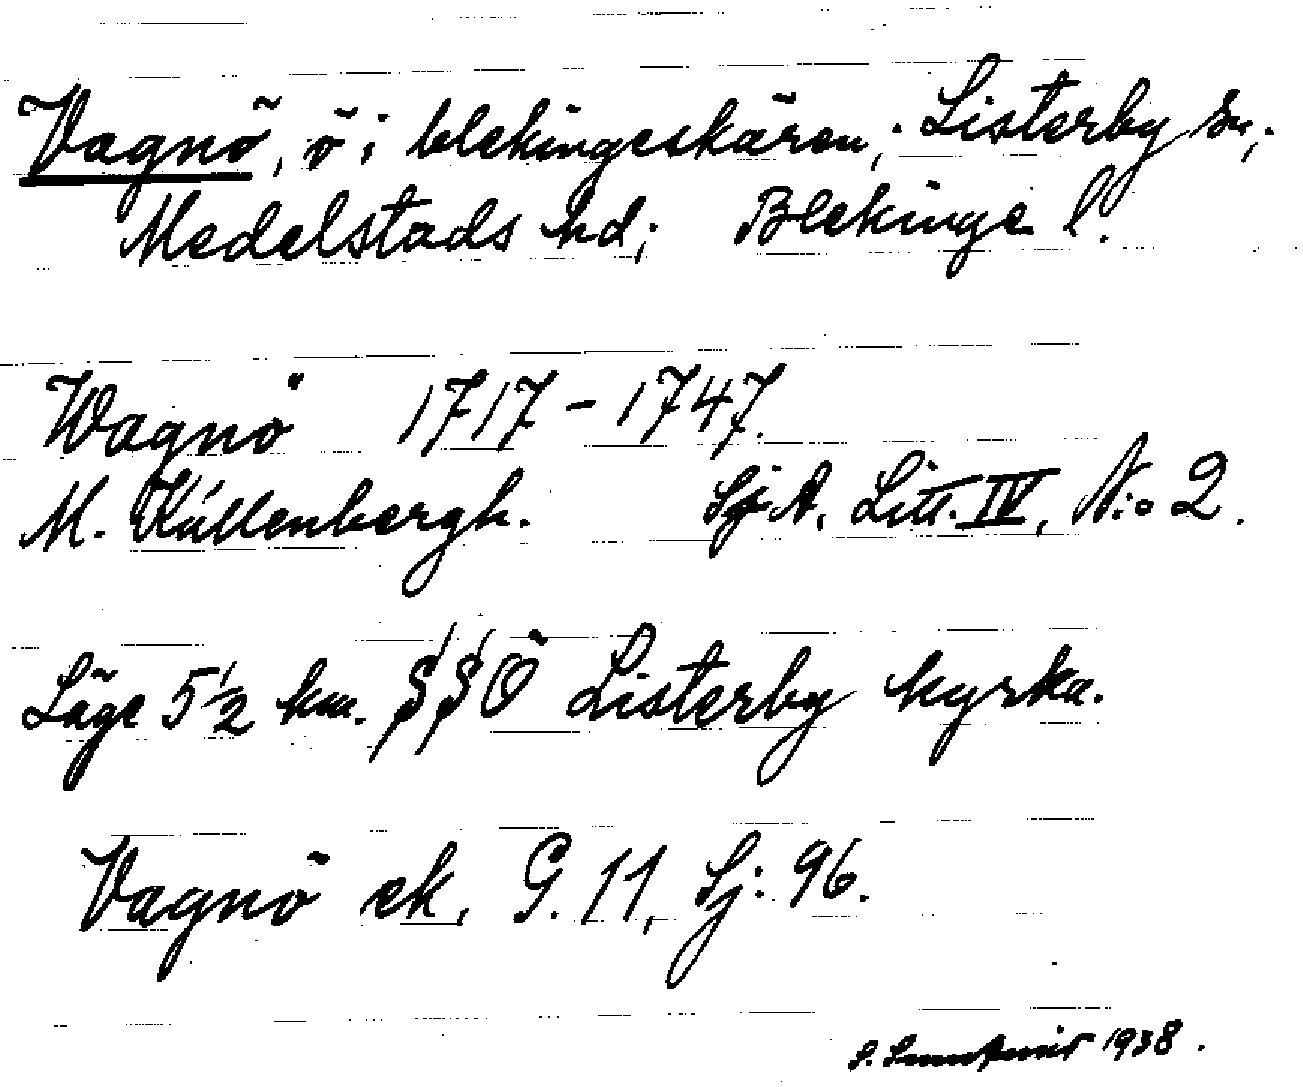 Vagnö, ö i blekingeskären; Listerby sn;
Medelstads hd; Blekinge l.
Wagnö 1717-1747.
M. Küllenbergh. SjA. Litt. IV, N:o 2.
Läge 5 1/2 km. SSÖ Listerby kyrka.
Vagnö ek. G. 11, Sj: 96.
S. 1938.